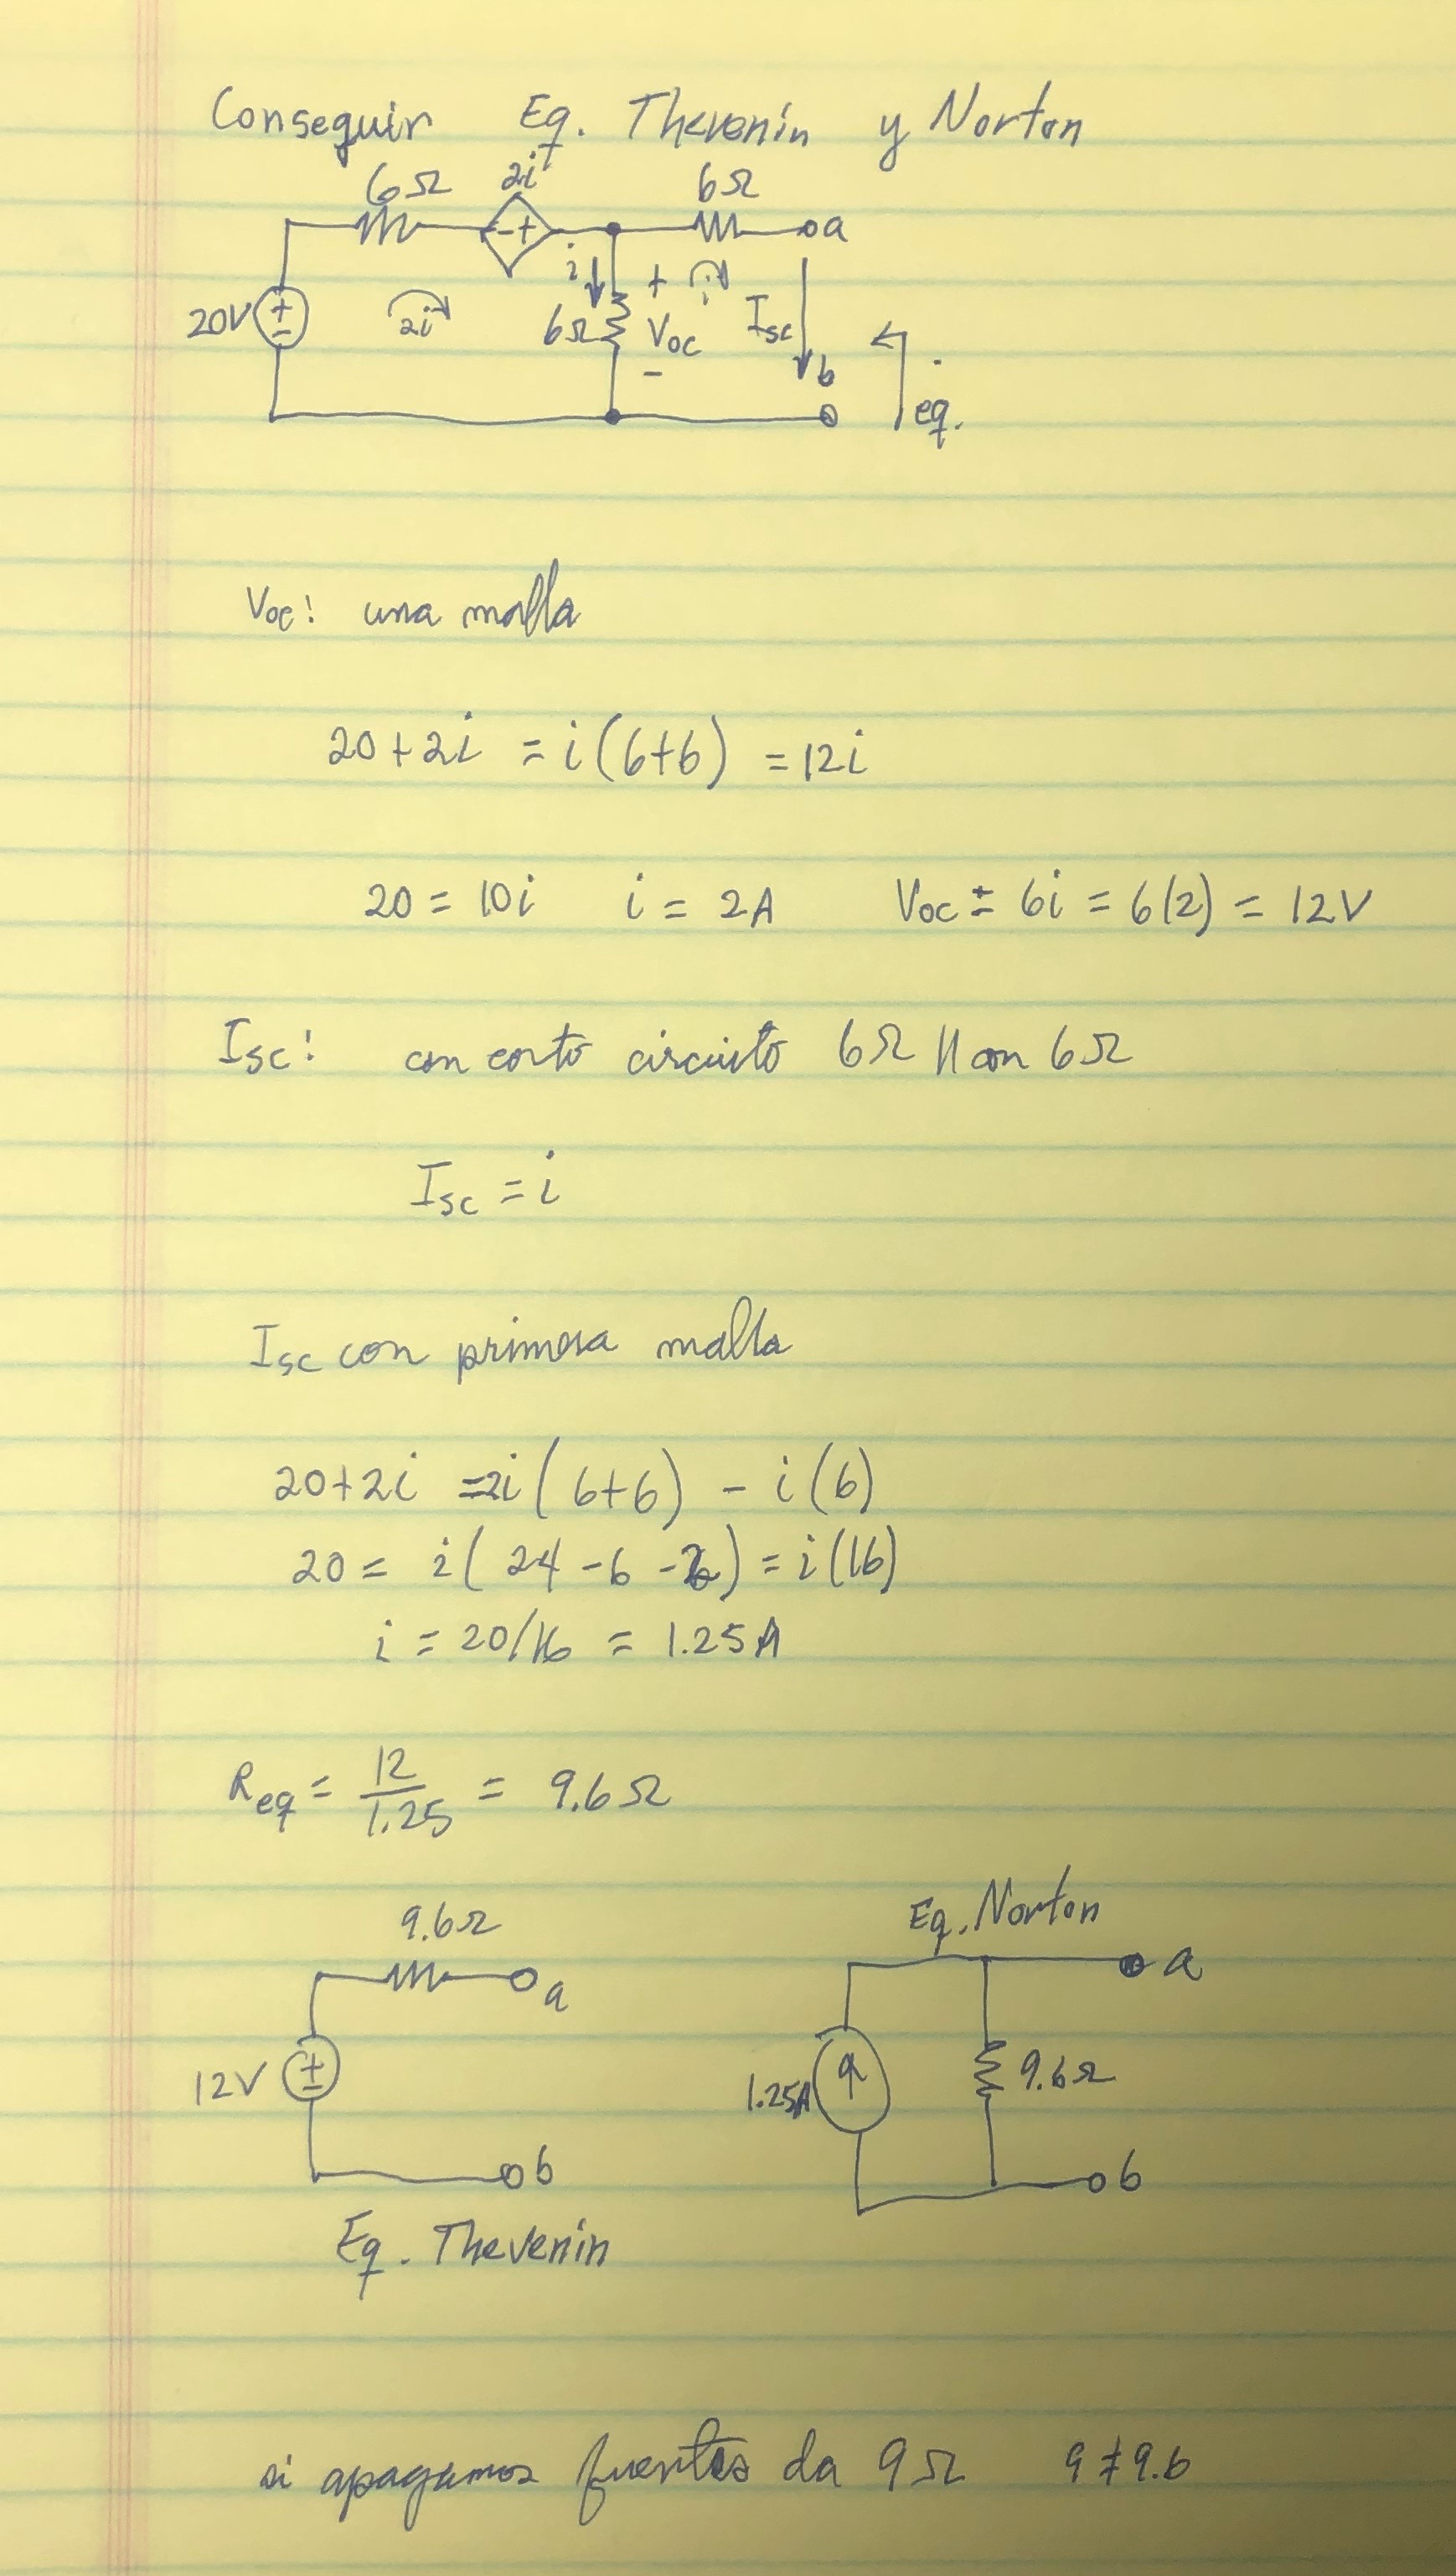 Conseguir Eq. Thevenin y Norton
6Ω 2i 6Ω
- + a
i + i
20V + - 2i 6Ω Voc Isc
- b
eq.
Voc: una malla
20+2i = i(6+6) = 12i
20 = 10i i = 2A Voc = 6i = 6(2) = 12V
Isc: con corto circuito 6Ω || con 6Ω
Isc = i
Isc con primera malla
20+2i = 2i(6+6) - i(6)
20 = i(24-6-2) = i(16)
i = 20/16 = 1.25A
Req = 12/1.25 = 9.6Ω
9.6Ω Eq. Norton
a a
12V + - 1.25A 9.6Ω
b b
Eq. Thevenin
si apagamos fuentes da 9Ω 9≠9.6